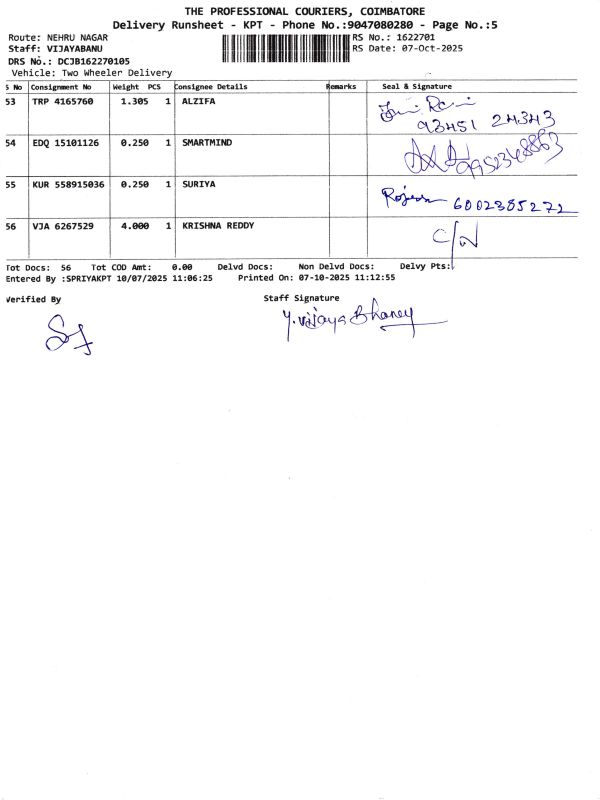 THE PROFESSIONAL COURIERS, COIMBATORE
Delivery Runsheet - KPT - Phone No.:9047080280 - Page No.:5
Route: NEHRU NAGAR RS No.: 1622701
Staff: VIJAYABANU RS Date: 07-Oct-2025
DRS No.: DCJB162270105
Vehicle: Two Wheeler Delivery
S No Consignment No Weight PCS Consignee Details Remarks Seal & Signature
53 TRP 4165760 1.305 1 ALZIFA
93451 24343
54 EDQ 15101126 0.250 1 SMARTMIND
55 KUR 558915036 0.250 1 SURIYA
6002385272
56 VJA 6267529 4.000 1 KRISHNA REDDY
C/N
Tot Docs: 56 Tot COD Amt: 0.00 Delvd Docs: Non Delvd Docs: Delvy Pts:
Entered By :SPRIYAKPT 10/07/2025 11:06:25 Printed On: 07-10-2025 11:12:55
Verified By Staff Signature
Y. Vijaya Bhaney